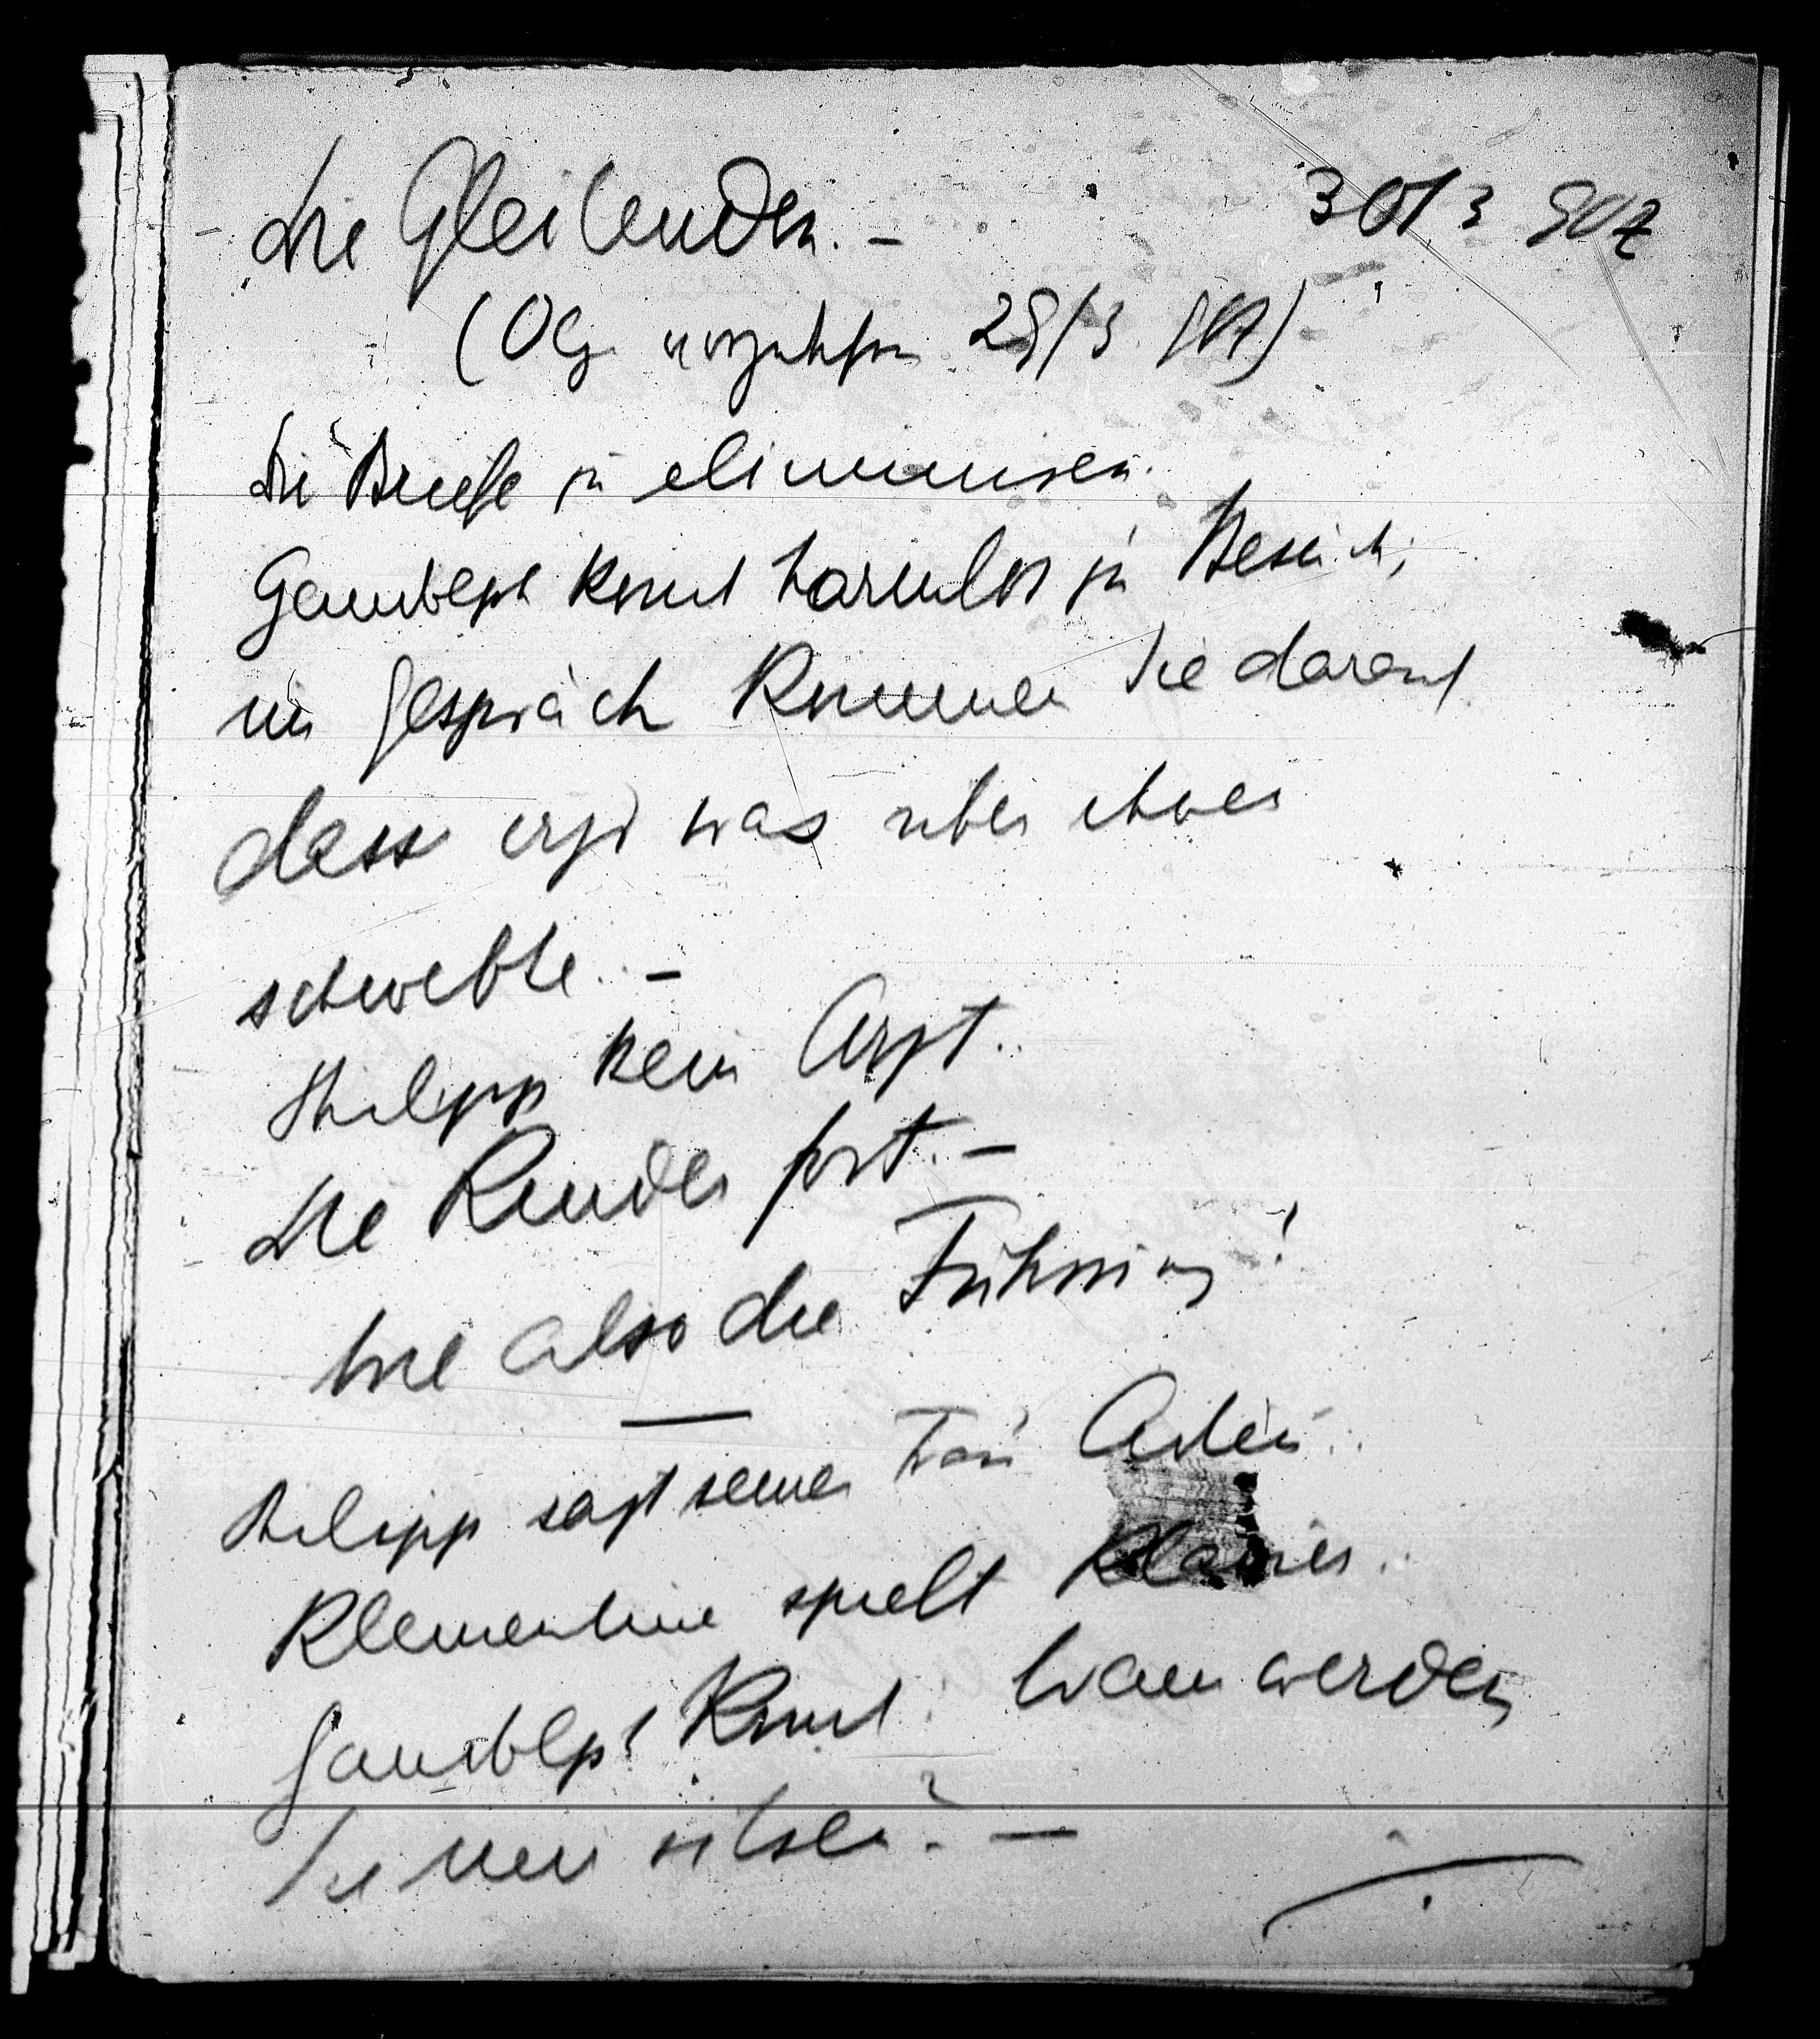 Die Gleitenden. – 30/3 907
(Olg vorzulesen 29/3 907)
Die Briefe zu eliminiren.
Gaudolph kommt harmlos zu Besuch;
im Gespräch kommen sie darauf
dass irgd was über ihnen
schwebte. –
Philipp kein Arzt..
Die Kinder fort. –
Wie also die Führung?
Philipp sagt seiner Frau Adieu..
Klementine spielt Klavier..
kommt: Wann werden
Sie nun reisen? –